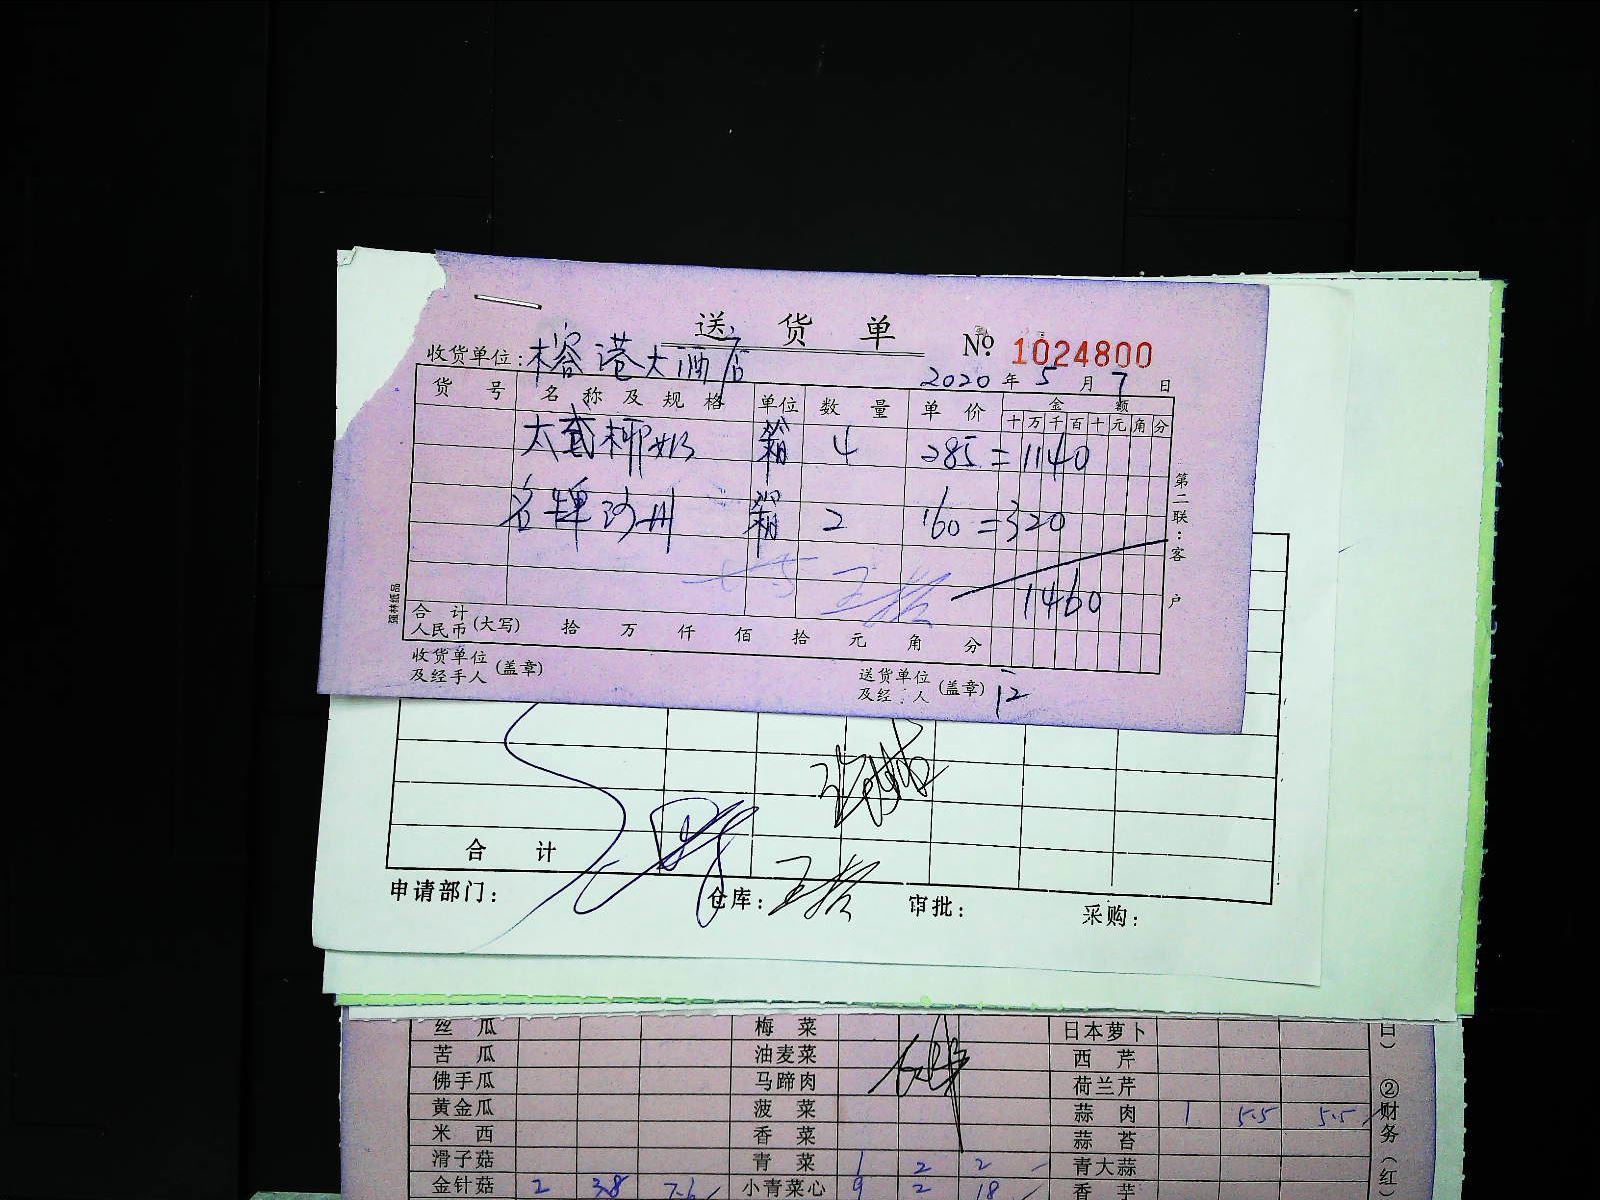 送货单 № 1024800
收货单位: 榕港大酒店 2020年5月7日
货号 名称及规格 单位 数量 单价 金额
十万千百十元角分
椰奶 箱 4 285=1140
名牌 箱 2 160=320
1460
合计
人民币(大写) 拾 万 仟 佰 拾 元 角 分
收货单位
及经手人(盖章)
送货单位
及经 人(盖章)
12
第二联:客户
强林纸品
合计
申请部门: 仓库: 审批: 采购:
丝瓜 梅菜 日本萝卜
苦瓜 油麦菜 西芹
佛手瓜 马蹄肉 荷兰芹
黄金瓜 菠菜 蒜肉 1 5.5 5.5
米西 香菜 蒜苔
滑子菇 青菜 1 2 2 青大蒜
金针菇 2 3.8 7.6 小青菜心 9 2 18 香芋
②财务(红)